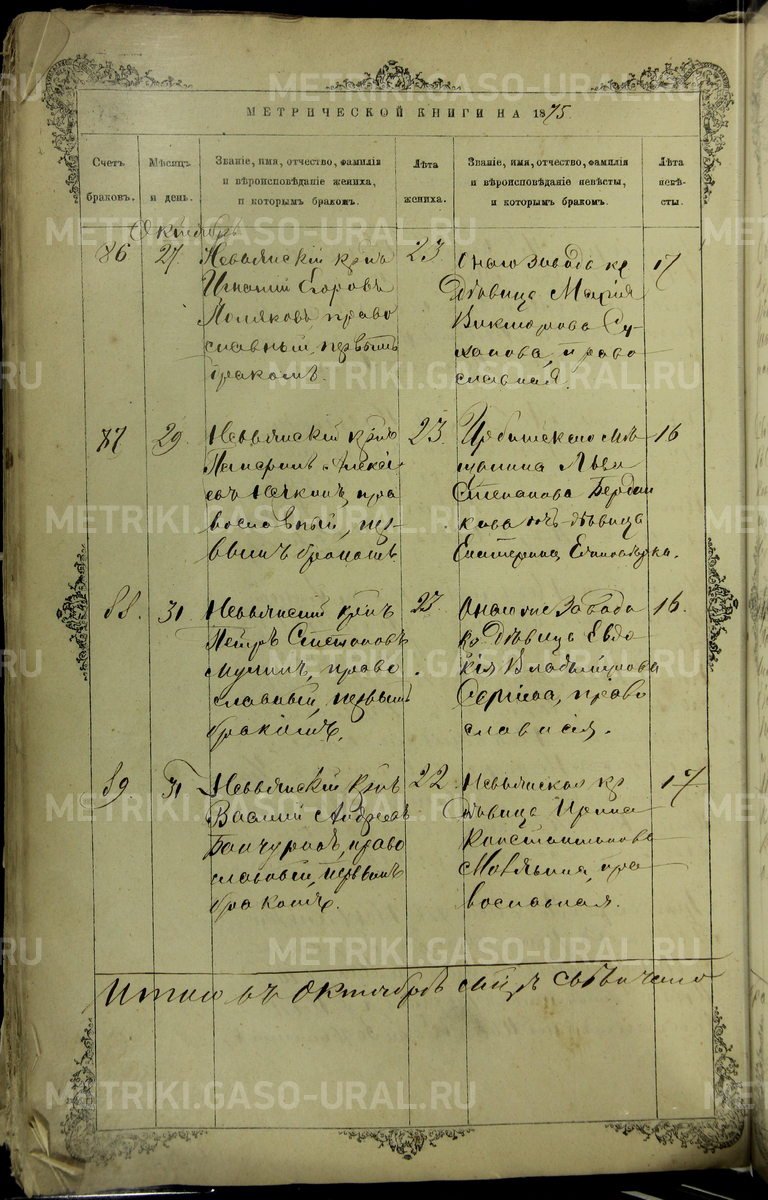 МЕТРИЧЕСКОЙ КНИГИ НА 1875
Счетъ браковъ.
Мѣсяцъ и день.
Званіе, имя, отчество, фамилія и вѣроисповѣданіе жениха, и которымъ бракомъ.
Лѣта жениха.
Званіе, имя, отчество, фамилія и вѣроисповѣданіе невѣсты, и которымъ бракомъ.
Лѣта невѣсты.
Октябрь
86
27
Невьянскій крнъ
Игнатій Егоровъ
Поляковъ, право
славный, первымъ
бракомъ.
23
Онаго завода кр
дѣвица Марія
Викторова Су-
ханова, право
славная.
17
87
29
Невьянскій крнъ
Алексі
евъ пра
вославный, пер-
вымъ бракомъ.
23
Ирбитскаго мѣ
щанина Льва
Степанова
дочь дѣвица
Екатерина,
16
88.
31
Невьянскій крнъ
Петръ Степановъ
право
славный, первымъ
бракомъ.
23.
Онаго же завода
кр дѣвица Евдо
кія Владимірова
право
славная.
16.
89
31
Невьянскій крнъ
Василій Андреевъ
право
славный, первымъ
бракомъ.
22.
Невьянская кр
дѣвица Ирина
Константинова
пра
вославная.
17.
Итого въ Октябрѣ мцѣ свѣнчано
METRIKI.GASO-URAL.RU